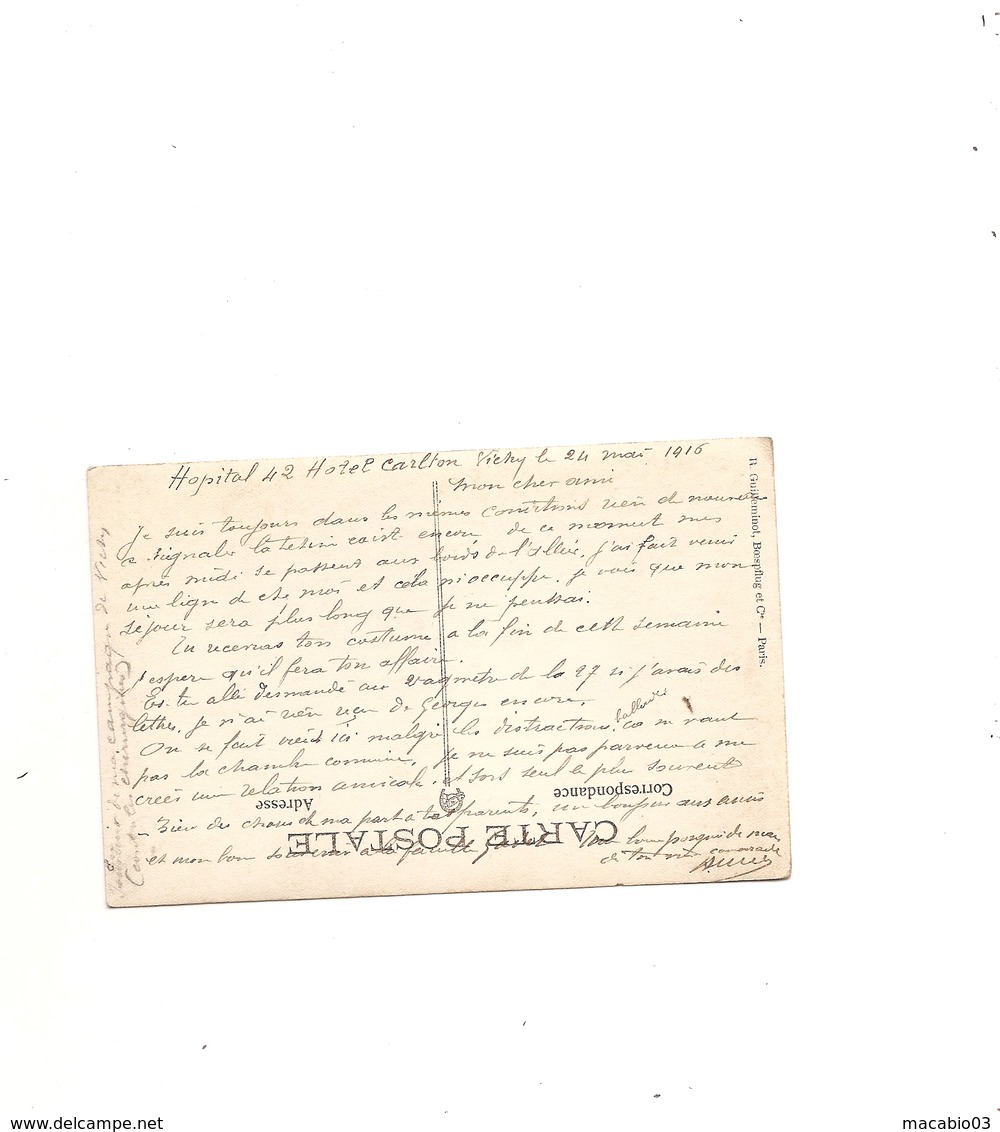 Hopital 42 Hotel Carlton Vichy le 24 mai 1916
Mon cher ami
Je suis toujours dans les mêmes conditions rien de nouveau
a signaler la lésion existe encore de ce moment mes
après midi se passent aux bords de l'Allier, j'ai fait venir
une ligne de chez moi et cela m'occuppe. je vois que mon
séjour sera plus long que je ne pensai.
Tu recevras ton costume a la fin de cette semaine
j'espere qu'il fera ton affaire.
Es tu allé demandé au vaguemestre de la 27 si j'avais des
lettres. je n'ai rien reçu de Georges encore.
On se fait vieux ici malgré les distractions, ca ne vaut
pas la chambre commune. je ne suis pas parvenu a me
creés une relation amicale. et sors seul le plus souvent
Bien des choses de ma part à tes parents, un bonjour aux amis
et mon bon souvenir a la famille
de ton vieux camarade
de ma campagne de Vichy
CARTE POSTALE
Correspondance
Adresse
R. Guilleminot, Bœspflug et Cie — Paris.
macabio03